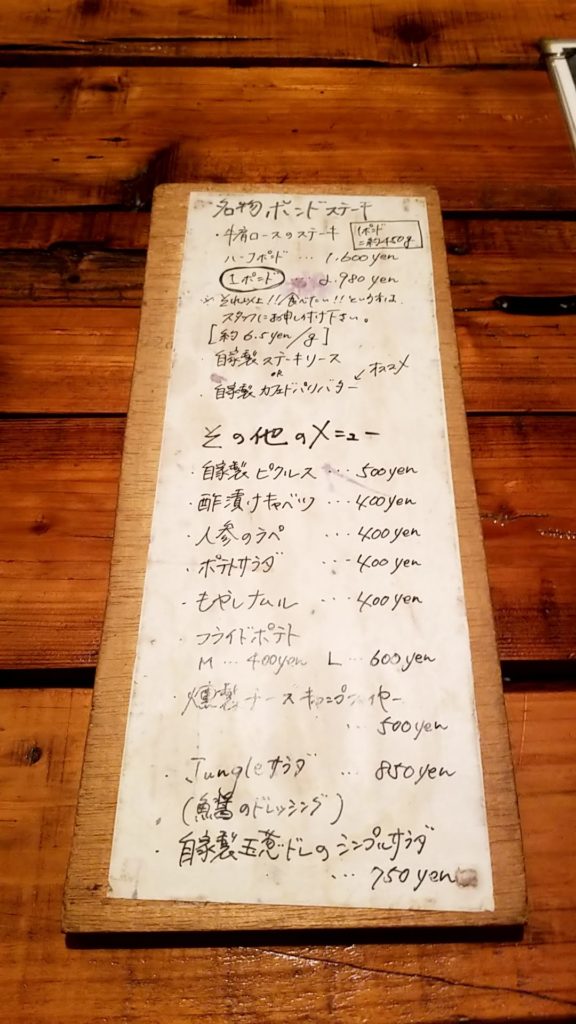 名物 ポンドステーキ
・牛肩ロースのステーキ
1ポンド
=約450g
ハーフポンド … 1.600yen
1ポンド … 2.980yen
※ それ以上!! 食べたい!! という方は、
スタッフにお申し付け下さい。
[約6.5yen/g]
・自家製 ステーキソース
or
オススメ
・自家製 カフェドパリバター
その他のメニュー
・自家製 ピクルス … 500yen
・酢漬けキャベツ … 400yen
・人参のラペ … 400yen
・ポテトサラダ … 400yen
・もやしナムル … 400yen
・フライドポテト
M … 400yen L … 600yen
・燻製チーズキャンプファイヤー
… 500yen
・Jungleサラダ … 850yen
(魚醤のドレッシング)
・自家製玉葱ドレのシンプルサラダ
… 750yen